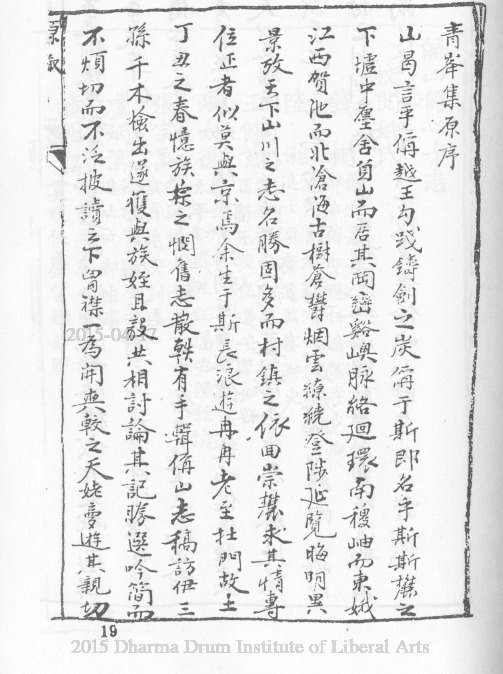 青峯集原序
山曷言乎偁越王勾践鑄劍之炭偁于斯即名乎斯斯麓之
下墟中廛舍負山而居其岡巒谿嶼脉絡迴環南稷岫而東娥
江西賀池而北滄海古樹蒼欝烟雲繚繞登陟延覽晦明異
景放天下山川之志名勝固多而村鎮之依回崇麓求其情專
位正者似莫與京焉余生于斯長浪遊冉冉老至杜門故土
丁丑之春憶族棕之憫舊志散軼有手輯偁山志稿訪伊三
孫千木檢出遂獲與族姪且設共相討論其記勝選吟簡而
不煩切而不泛披讀之下胷襟一爲開爽較之天姥夢遊其親切
原叙
2015-04-17
19
2015 Dharma Drum Institute of Liberal Arts